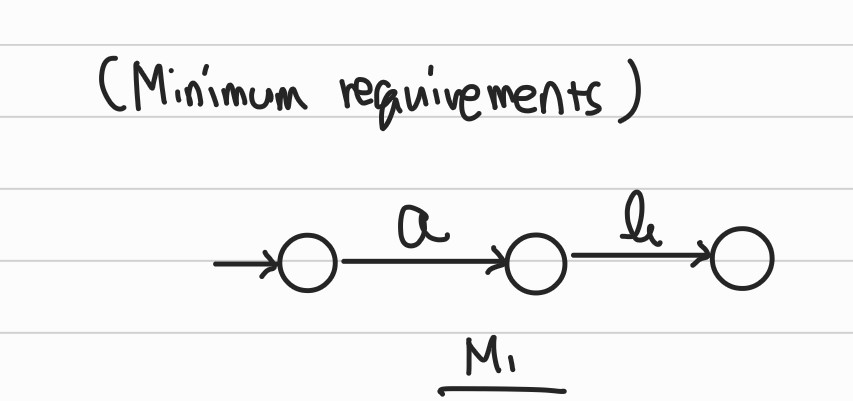 (Minimum requirements)
a b
M1